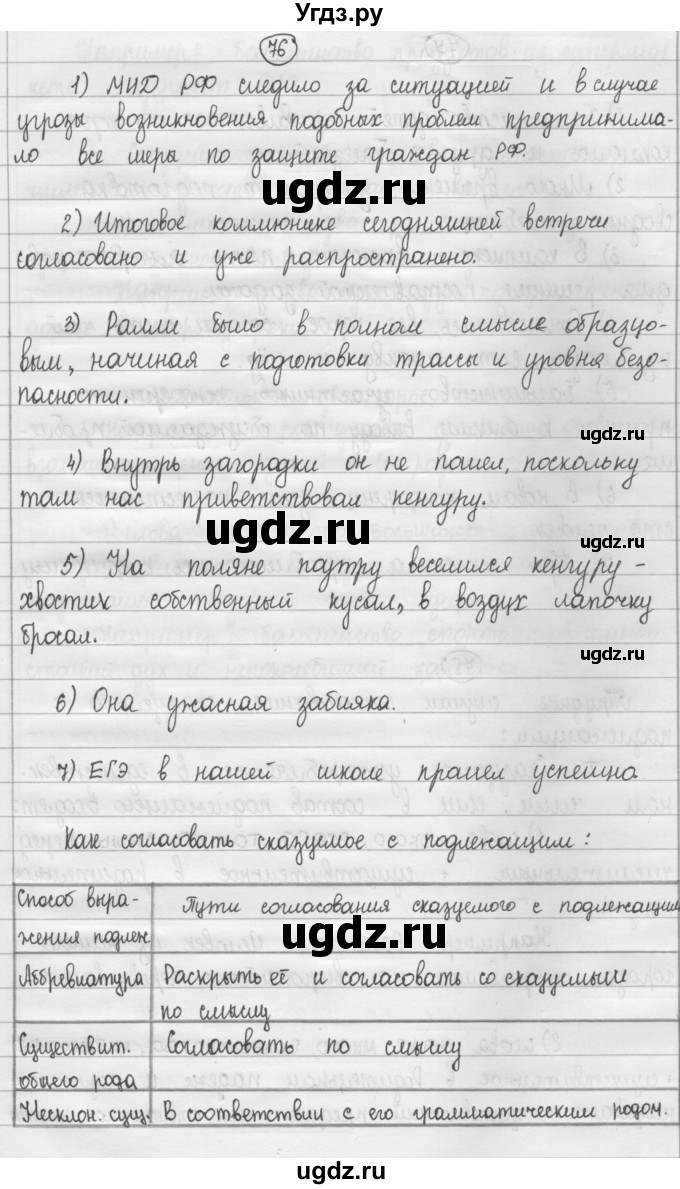 Угдз.ру
76
1) МИД РФ следило за ситуацией и в случае
угрозы возникновения подобных проблем предпринима-
ло все меры по защите граждан РФ.
ugdz.ru
ugdz.ru
2) Итоговое коммюнике сегодняшней встречи
согласовано и уже распространено.
ugdz.ru
3) Ралли было в полном смысле образцо-
вым, начиная с подготовки трассы и уровня безо-
пасности.
ugdz.ru
4) Внутрь загородки он не пошел, поскольку
там нас приветствовал кенгуру.
ugdz.ru
ugdz.ru
5) На поляне поутру веселился кенгуру -
хвостик собственный кусал, в воздух лапочку
бросал.
ugdz.ru
6) Она ужасная забияка.
ugdz.ru
7) ЕГЭ в нашей школе прошел успешно
Как согласовать сказуемое с подлежащим:
ugdz.ru
Способ выра-
жения подлеж.
Пути согласования сказуемого с подлежащим
ugdz.ru
Аббревиатура
Раскрыть её и согласовать со сказуемым
по смыслу
Существит.
общего рода
Согласовать по смыслу
ugdz.ru
Несклон. сущ.
В соответствии с его грамматическим родом.
ugdz.ru